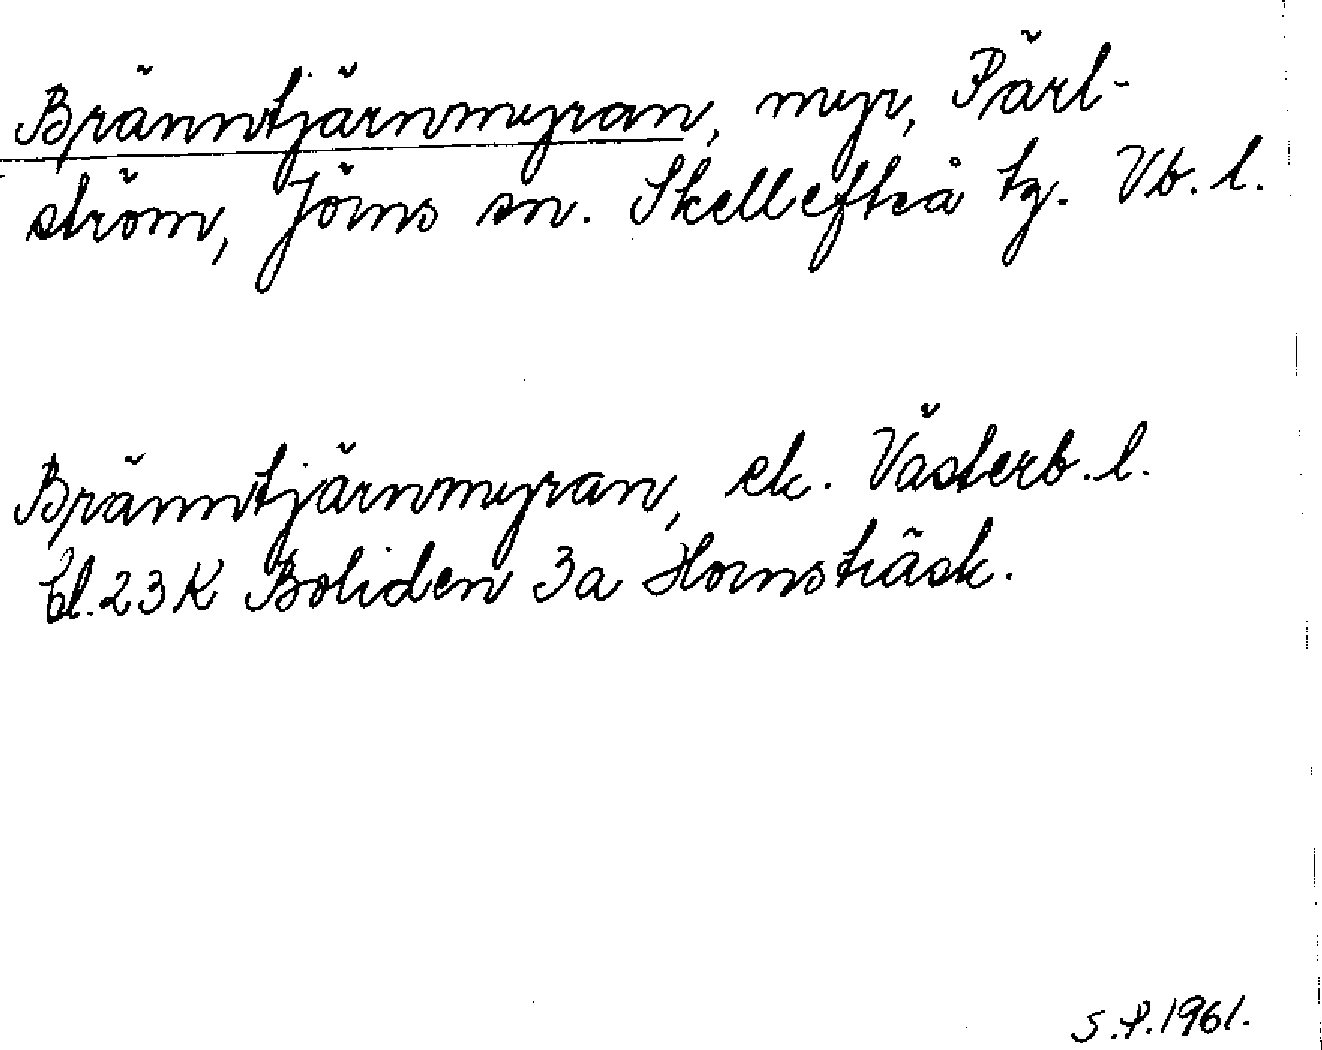 Bränntjärnmyran, myr, Pärl-
ström, Jörns sn. Skellefteå tg. Vb. l.
Bränntjärnmyran, ek. Västerb. l.
bl. 23 K Boliden 3a Hornsträsk.
S.P. 1961.